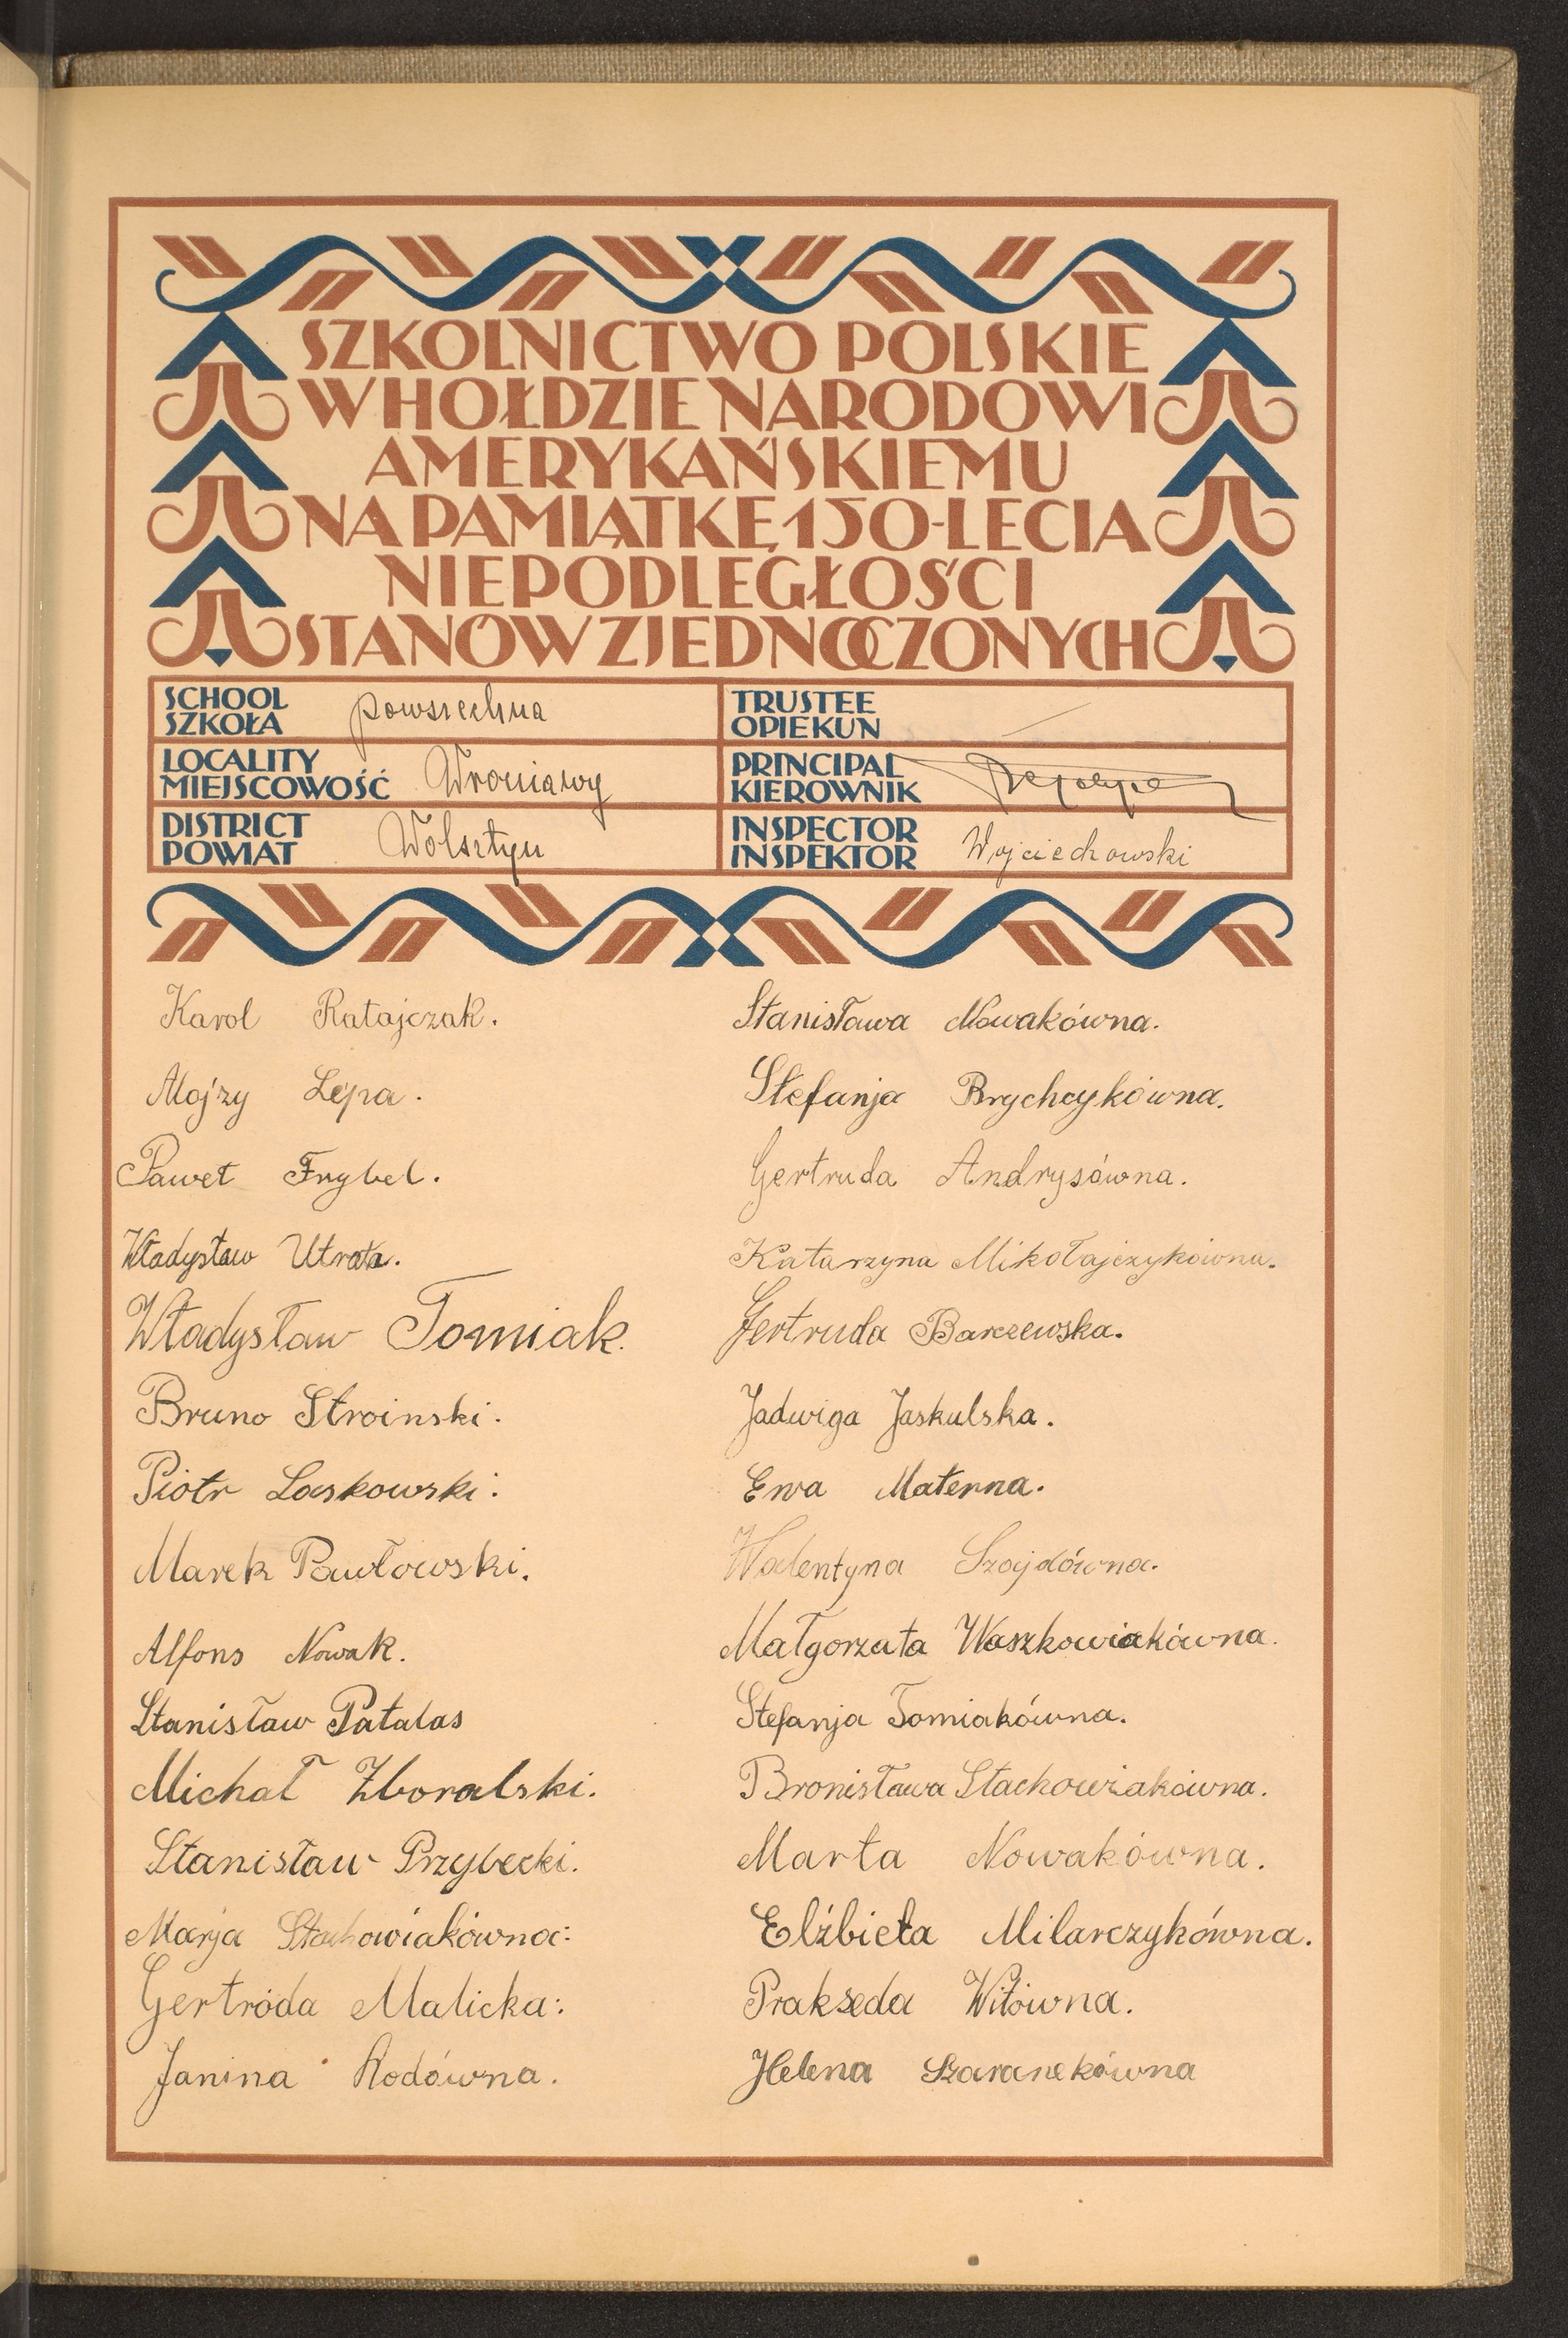 SZKOLNICTWO POLSKIE
W HOŁDZIE NARODOWI
AMERYKAŃSKIEMU
NA PAMIĄTKĘ 150-LECIA
NIEPODLEGŁOŚCI
STANÓW ZJEDNOCZONYCH
SCHOOL
SZKOŁA
powszechna
TRUSTEE
OPIEKUN
LOCALITY
MIEJSCOWOŚĆ
Wroniawy
PRINCIPAL
KIEROWNIK
DISTRICT
POWIAT
Wolsztyn
INSPECTOR
INSPEKTOR
Wojciechowski
Karol Ratajczak.
Alojzy Lepa.
Paweł Frybel.
Władysław Utrata.
Władysław Tomiak.
Bruno Stroinski.
Piotr Laskowski.
Marek Pawłowski.
Alfons Nowak.
Stanisław Patalas
Michał Zboralski.
Stanisław Przybecki.
Marja Stachowiakówna:
Gertróda Malicka:
Janina Rodówna.
Stanisława Nowakówna.
Stefanja Brychcykówna.
Gertruda Andrysówna.
Katarzyna Mikołajczykówna.
Gertruda Barczewska.
Jadwiga Jaskulska.
Ewa Materna.
Walentyna Szajdówna.
Małgorzata Waszkowiakówna.
Stefanja Tomiakówna.
Bronisława Stachowiakówna.
Marta Nowakówna.
Elżbieta Milarczykówna.
Prakseda Witówna.
Helena Szaranekówna